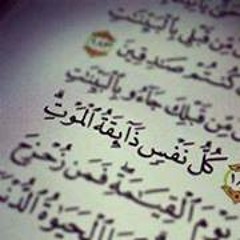 مِّن قَبْلِى بِٱلْبَيِّنَٰتِ
كُنتُمْ صَٰدِقِينَ ١٨٣
مِّن قَبْلِكَ جَآءُو بِٱلْبَيِّنَٰتِ
كُلُّ نَفْسٍ ذَآئِقَةُ ٱلْمَوْتِ
يَوْمَ ٱلْقِيَٰمَةِ فَمَن زُحْزِحَ
ٱلْحَيَوٰةُ